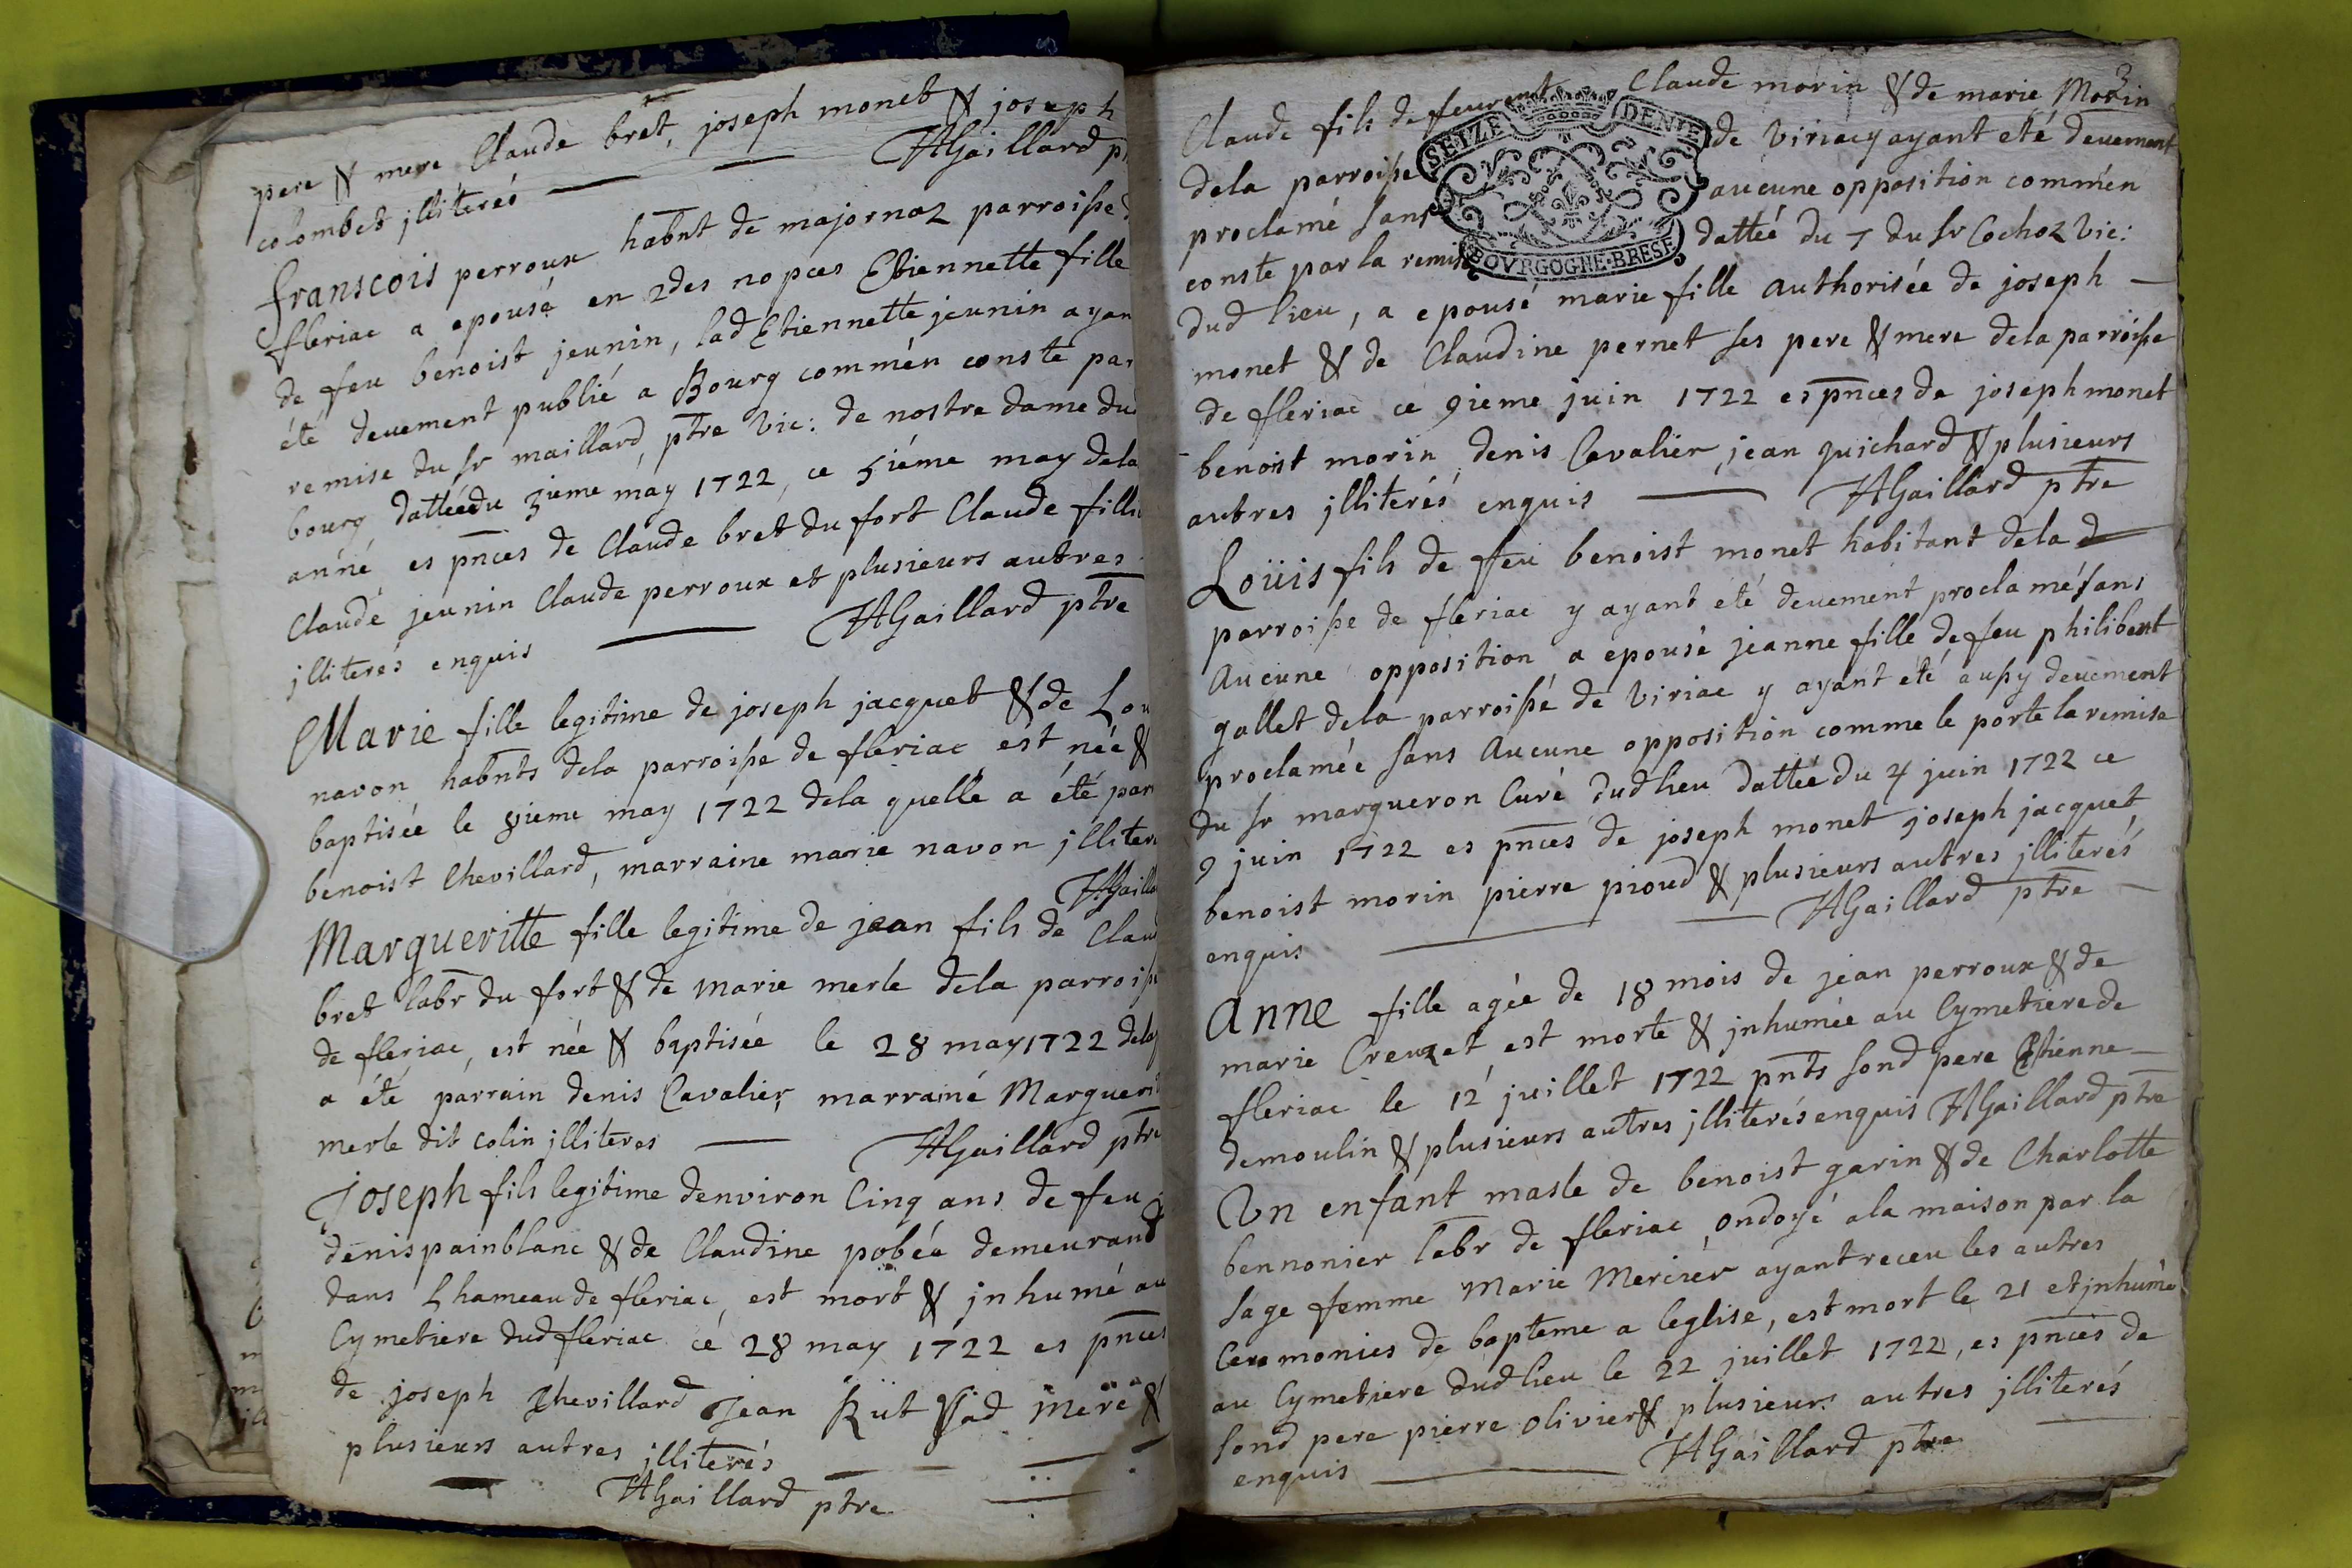 pere & mere Claude bret, joseph monet & joseph
colombet jlliterés AGaillard
franscois perroux habnt de majornaz parroisse
fleriac a epousé en 2des nopces Etiennette fille
de feu benoist jeunin, lad Etiennette jeunin ayan
été deuement publié a Bourg commén conste par
remise du sr maillard, ptre vic: de nostre dame dud
bourg dattéedu 3ieme may 1722, ce 5iéme may dela
anné, es pnces de Claude bret du fort Claude fillio
Claude jeunin Claude perroux et plusieurs autres
jlliterés enquis AGaillard ptre
Marie fille legitime de joseph jacquet & de Lou
navon habnts dela parroisse de fleriac, est née &
baptisée le 8ieme may 1722 dela quelle a été par
benoist Chevillard, marraine marie navon jlliter
AGailla
Margueritte fille legitime de jean fils de Claud
bret labr du fort & de marie merle dela parroiss
de fleriac, est née & baptisée le 28 may 1722 delaq
a été parrain denis Cavalier, marrainé Marguerit
merle dit colin jlliteres AGaillard ptre
Joseph fils legitime denviron Cinq ans de feu
denis painblanc & de Claudine pobée demeurant
dans Lhameau de fleriac, est mort & jnhumé au
Cymetiere dud fleriac cé 28 may 1722 es pnces
de joseph Chevillard Jean Rüt Sad mere &
plusieurs autres jlliterés
AGaillard ptre
3
Claude fils de feu Claude morin & de marie Morin
dela parroisse de viriacy ayant eté deuement
proclamé sans aucune opposition commén
conste par la remise dattée du 7 du sr Cochoz vic:
SEIZE DENIE
BOVRGOGNE·BRESE
dud lieu, a epousé marie fille authorisée de joseph
monet & de Claudine pernet ses pere & mere dela parroisse
de fleriac ce 9ieme juin 1722 es pnces de joseph monet
benoist morin denis Cavalier, jean guichard & plusieurs
autres jlliterés enquis AGaillard ptre
Loüis fils de feu benoist monet habitant dela d
parroisse de fleriac y ayant été deuement proclamé sans
Aucune opposition a epousé jeanne fille de feu philibert
gallet dela parroissé de viriac y ayant été aussy deuement
proclamée sans Aucune opposition comme le porte la remise
du sr margueron Curé dudlieu dattée du 4 juin 1722 ce
9 juin 1722 es pnces de joseph monet joseph jacquet,
benoist morin pierre pioud & plusieurs autres jlliterés
enquis AGaillard ptre
Anne fille agée de 18 mois de jean perroux & de
marie Creuzet est morte & jnhumée au Cymetiere de
fleriac le 12 juillet 1722 pnts sond pere Etienne
demoulin & plusieurs autres jlliterés enquis AGaillard ptre
Vn enfant masle de benoist garin & de Charlotte
bennonier labr de fleriac, ondoyé ala maison par la
sage femme Marie Mercier ayant receu les autres
Ceremonies de bapteme a leglise, est mort le 21 et jnhumé
au Cymetiere dudlieu le 22 juillet 1722, es pnces de
sond pere pierre olivier & plusieurs autres jlliterés
enquis AGaillard ptre